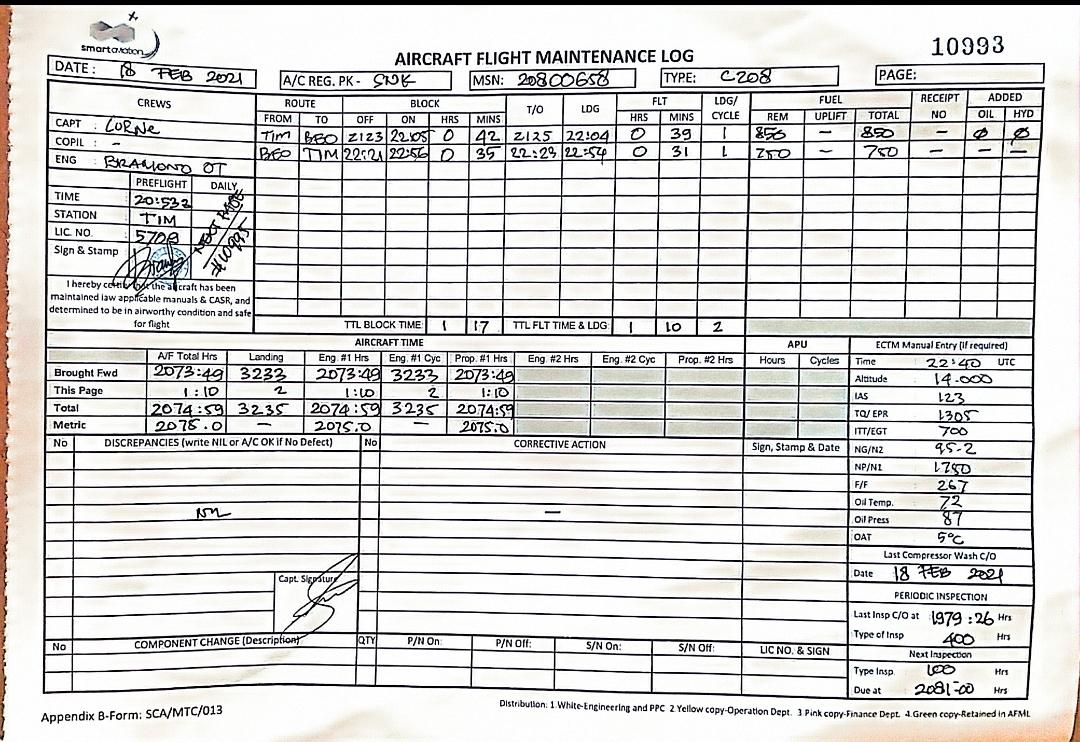 smartaviation
AIRCRAFT FLIGHT MAINTENANCE LOG
10993
DATE : 18 FEB 2021
A/C REG. PK - SNK
MSN: 20800658
TYPE: C208
PAGE:
CREWS ROUTE BLOCK T/O LDG FLT LDG/ CYCLE FUEL RECEIPT NO ADDED
FROM TO OFF ON HRS MINS HRS MINS REM UPLIFT TOTAL OIL HYD
CAPT : LORNE
Tim BEO 2123 22:05 0 42 2125 22:04 0 39 1 850 - 850 - Ø Ø
COPIL : -
BEO TIM 22:21 22:56 0 35 22:23 22:54 0 31 1 750 - 750 - - -
ENG : BRAMONO OT
PREFLIGHT DAILY
TIME 20:53z
STATION TIM
LIC. NO. 5708
NEXT PAGE
#10995
Sign & Stamp
I hereby certify that the aircraft has been
maintained iaw applicable manuals & CASR, and
determined to be in airworthy condition and safe
for flight
TTL BLOCK TIME: 1 17 TTL FLT TIME & LDG: 1 10 2
AIRCRAFT TIME APU ECTM Manual Entry (if required)
A/F Total Hrs Landing Eng. #1 Hrs Eng. #1 Cyc Prop. #1 Hrs Eng. #2 Hrs Eng. #2 Cyc Prop. #2 Hrs Hours Cycles
Brought Fwd 2073:49 3233 2073:49 3233 2073:49
This Page 1:10 2 1:10 2 1:10
Total 2074:59 3235 2074:59 3235 2074:59
Metric 2075.0 - 2075.0 - 2075.0
Time 22:40 UTC
Altitude 14.000
IAS 123
TQ/ EPR 1305
ITT/EGT 700
NG/N2 95.2
NP/N1 1750
F/F 267
Oil Temp. 72
Oil Press 87
OAT 5°C
No DISCREPANCIES (write NIL or A/C OK if No Defect) No CORRECTIVE ACTION Sign, Stamp & Date
NIL -
Capt. Signature
Last Compressor Wash C/O
Date 18 FEB 2021
PERIODIC INSPECTION
Last Insp C/O at 1979:26 Hrs
Type of Insp 400 Hrs
Next Inspection
Type Insp. 100 Hrs
Due at 2081:00 Hrs
No COMPONENT CHANGE (Description) QTY P/N On: P/N Off: S/N On: S/N Off: LIC NO. & SIGN
Appendix B-Form: SCA/MTC/013
Distribution: 1.White-Engineering and PPC 2.Yellow copy-Operation Dept. 3 Pink copy-Finance Dept. 4.Green copy-Retained in AFML